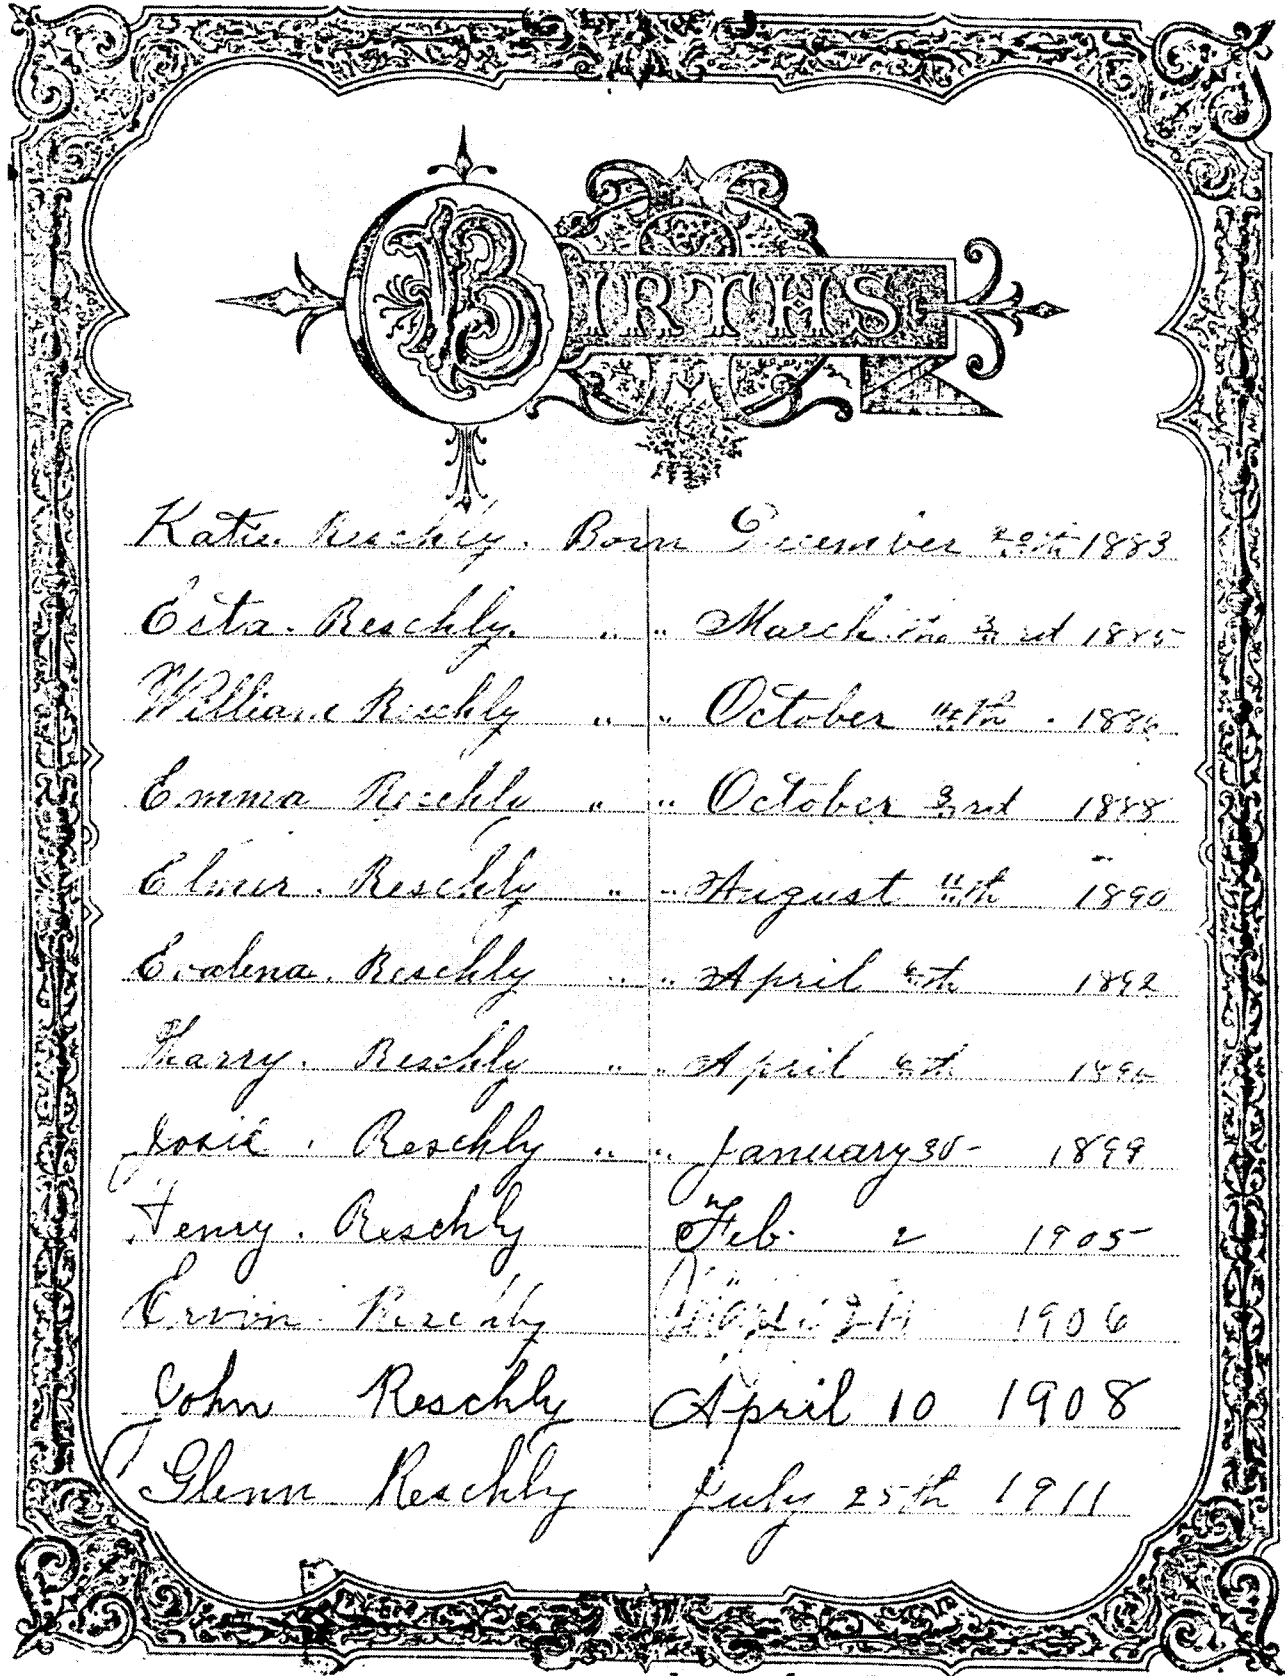 BIRTHS
Katie Reschly. Born December 1883
Esta. Reschly. " " March the 3rd 1885
William Reschly " " October 11th. 1886
Emma Reschly " " October 3rd 1888
Elmer. Reschly " " August 11th 1890
Evalena. Reschly " " April 1892
Harry. Reschly " " April
Josie. Reschly " " January 30- 1899
Henry. Reschly Feb. 2 1905
Ervin Reschly 1906
John Reschly April 10 1908
Glenn Reschly July 25th 1911